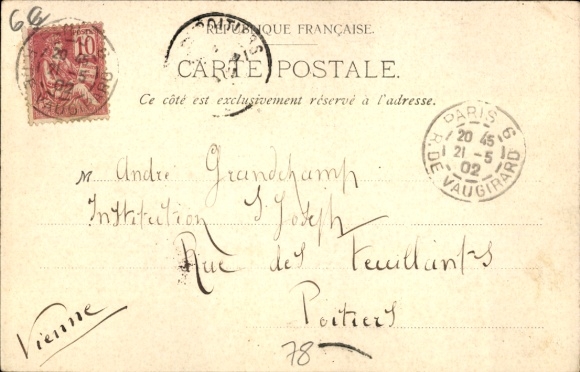 6e
10
POSTES
RÉPUBLIQUE FRANÇAISE.
POITIERS
CARTE POSTALE.
Ce côté est exclusivement réservé à l'adresse.
PARIS 9
20 45
21 - 5
02
R. DE VAUGIRARD
M Andre Grandchamp
Institution St Joseph
Rue des Feuillants
Poitiers
Vienne
78